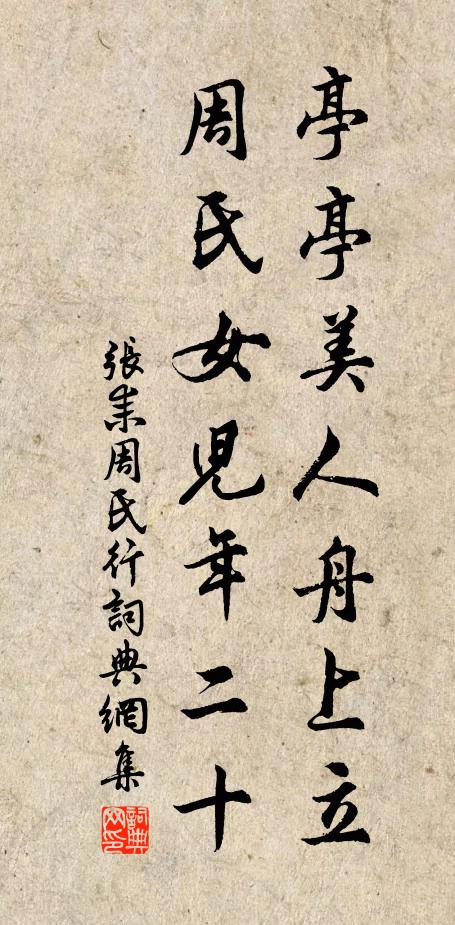 亭亭美人舟上立
周氏女児年二十
張耒周氏行詞典網集
詞典
网印